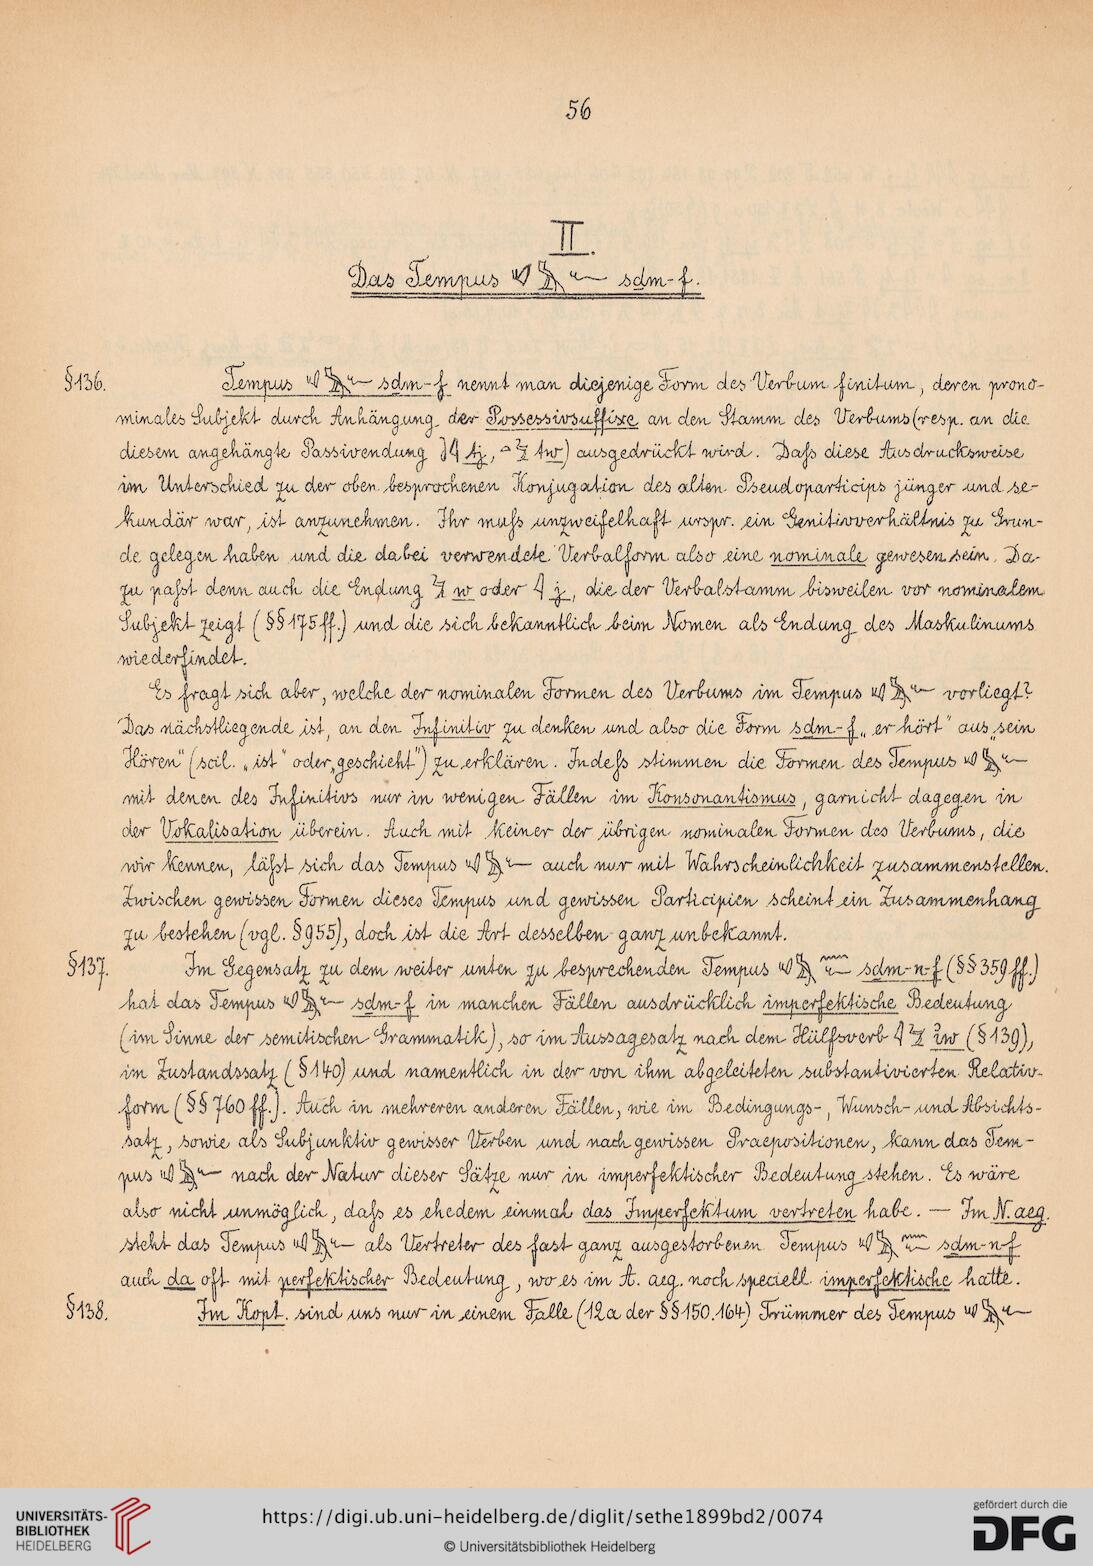 56
II.
Das Tempus sdm-f.
§136. Tempus sdm-f nennt man diejenige Form des Verbum finitum, deren prono-
minales Subjekt durch Anhängung der Possessivsuffixe an den Stamm des Verbums (resp. an die
diesem angehängte Passivendung tj, tw) ausgedrückt wird. Daſs diese Ausdrucksweise
im Unterschied zu der oben besprochenen Konjugation des alten Pseudoparticips jünger und se-
kundär war, ist anzunehmen. Ihr muſs unzweifelhaft urspr. ein Genitivverhältnis zu Grun-
de gelegen haben und die dabei verwendete Verbalform also eine nominale gewesen sein. Da-
zu paſst denn auch die Endung w oder j, die der Verbalstamm bisweilen vor nominalem
Subjekt zeigt (§§175ff.) und die sich bekanntlich beim Nomen als Endung des Maskulinums
wiederfindet.
Es fragt sich aber, welche der nominalen Formen des Verbums im Tempus vorliegt?
Das nächstliegende ist, an den Infinitiv zu denken und also die Form sdm-f „er hört" aus „sein
Hören" (scil. „ist" oder „geschieht") zu erklären. Indeſs stimmen die Formen des Tempus
mit denen des Infinitivs nur in wenigen Fällen im Konsonantismus, garnicht dagegen in
der Vokalisation überein. Auch mit keiner der übrigen nominalen Formen des Verbums, die
wir kennen, läſst sich das Tempus auch nur mit Wahrscheinlichkeit zusammenstellen.
Zwischen gewissen Formen dieses Tempus und gewissen Participien scheint ein Zusammenhang
zu bestehen (vgl. §955), doch ist die Art desselben ganz unbekannt.
§137. Im Gegensatz zu dem weiter unten zu besprechenden Tempus sdm-n-f (§§359ff.)
hat das Tempus sdm-f in manchen Fällen ausdrücklich imperfektische Bedeutung
(im Sinne der semitischen Grammatik), so im Aussagesatz nach dem Hülfsverb ꞽw (§139),
im Zustandssatz (§140) und namentlich in der von ihm abgeleiteten substantivierten Relativ-
form (§§760ff.). Auch in mehreren anderen Fällen, wie im Bedingungs-, Wunsch- und Absichts-
satz, sowie als Subjunktiv gewisser Verben und nach gewissen Praepositionen, kann das Tem-
pus nach der Natur dieser Sätze nur in imperfektischer Bedeutung stehen. Es wäre
also nicht unmöglich, daſs es ehedem einmal das Imperfektum vertreten habe. — Im N. aeg.
steht das Tempus als Vertreter des fast ganz ausgestorbenen Tempus sdm-n-f
auch da oft mit perfektischer Bedeutung, wo es im A. aeg. noch speciell imperfektische hatte.
§138. Im Kopt. sind uns nur in einem Falle (12a der §§150.164) Trümmer des Tempus
UNIVERSITÄTS-
BIBLIOTHEK
HEIDELBERG
https://digi.ub.uni-heidelberg.de/diglit/sethe1899bd2/0074
© Universitätsbibliothek Heidelberg
gefördert durch die
DFG